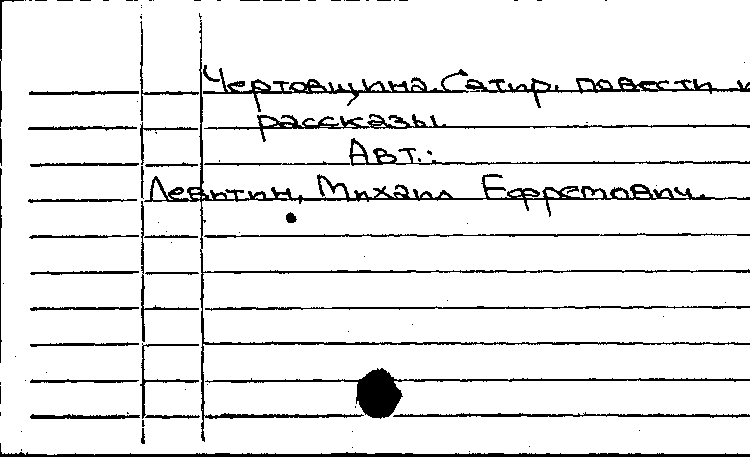 Чертовщина. Сатир. повести и
рассказы.
Авт.:
Левитин, Михаил Ефремович.